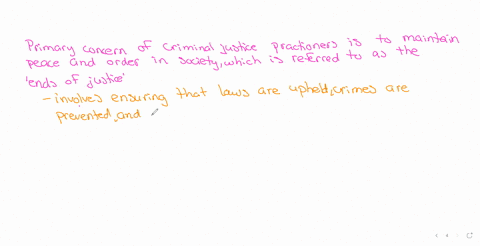 Primary concern of criminal justice practioners is to maintain
peace and order in society, which is referred to as the
'ends of justice'
- involves ensuring that laws are upheld, crimes are
prevented, and